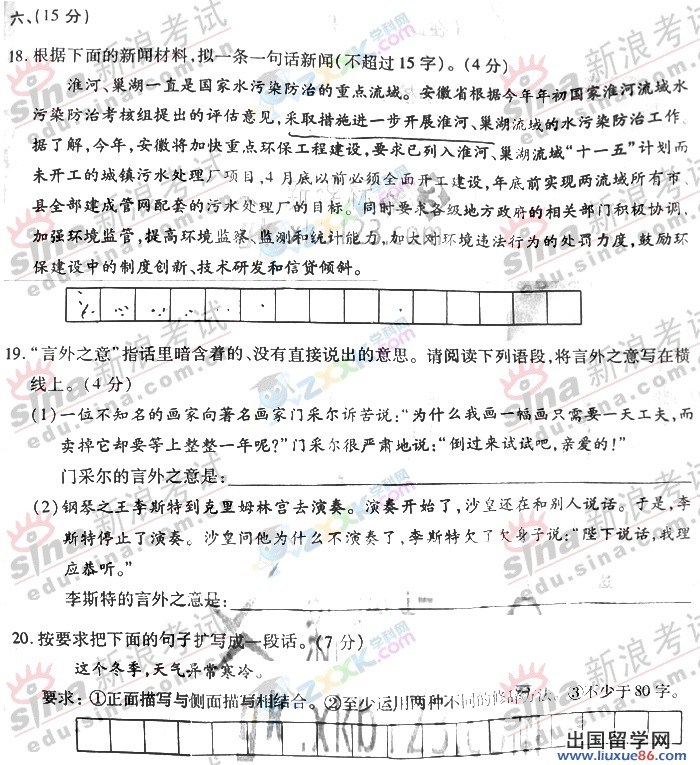 六、(15 分)
18. 根据下面的新闻材料,拟一条一句话新闻(不超过 15 字)。(4 分)
淮河、巢湖一直是国家水污染防治的重点流域。安徽省根据今年年初国家淮河流域水
污染防治考核组提出的评估意见,采取措施进一步开展淮河、巢湖流域的水污染防治工作。
据了解,今年,安徽将加快重点环保工程建设,要求已列入淮河、巢湖流域“十一五”计划而
未开工的城镇污水处理厂项目,4 月底以前必须全面开工建设,年底前实现两流域所有市、
县全部建成管网配套的污水处理厂的目标。同时要求各级地方政府的相关部门积极协调,
加强环境监管,提高环境监察、监测和统计能力,加大对环境违法行为的处罚力度,鼓励环
保建设中的制度创新、技术研发和信贷倾斜。
19. “言外之意”指话里暗含着的、没有直接说出的意思。请阅读下列语段,将言外之意写在横
线上。(4 分)
(1)一位不知名的画家向著名画家门采尔诉苦说:“为什么我画一幅画只需要一天工夫,而
卖掉它却要等上整整一年呢?”门采尔很严肃地说:“倒过来试试吧,亲爱的!”
门采尔的言外之意是:
(2)钢琴之王李斯特到克里姆林宫去演奏。演奏开始了,沙皇还在和别人说话。于是,李
斯特停止了演奏。沙皇问他为什么不演奏了,李斯特欠了欠身子说:“陛下说话,我理
应恭听。”
李斯特的言外之意是:
20. 按要求把下面的句子扩写成一段话。(7 分)
这个冬季,天气异常寒冷。
要求:①正面描写与侧面描写相结合。②至少运用两种不同的修辞方法。③不少于 80 字。
出国留学网
www.liuxue86.com
新浪考试
sina
edu.sina.com
学科网
ZXXK.com